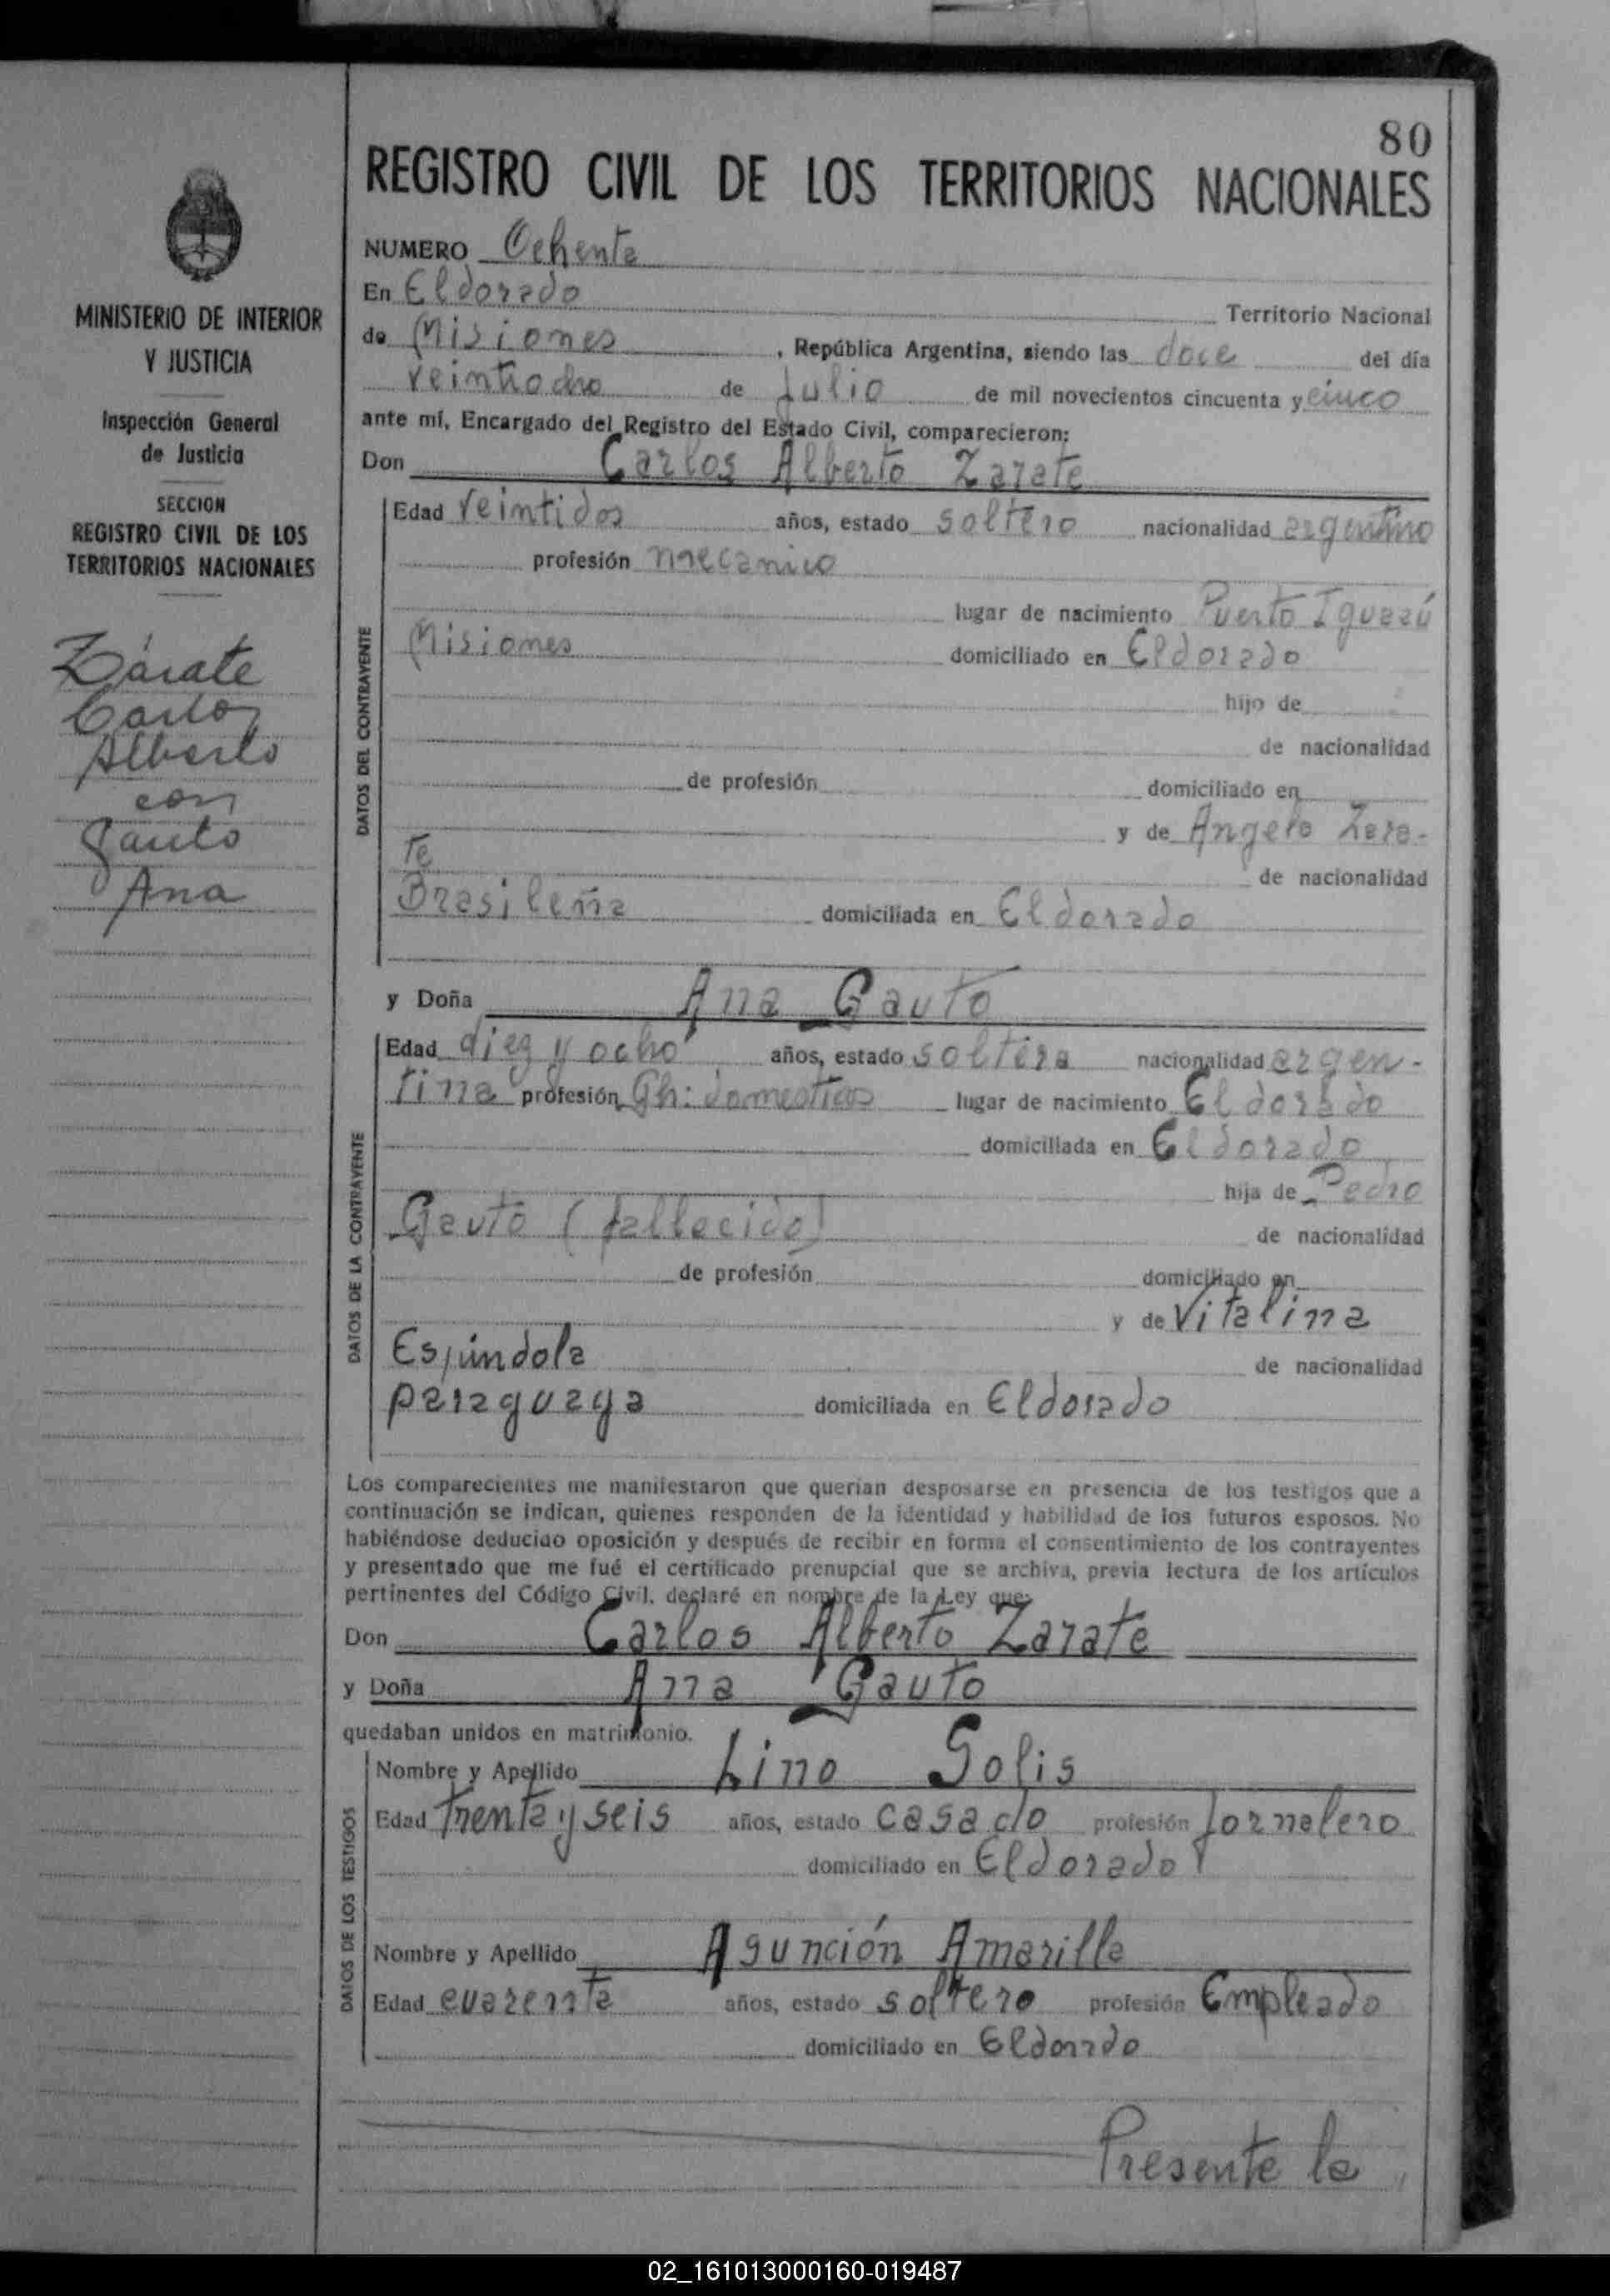 80
REGISTRO CIVIL DE LOS TERRITORIOS NACIONALES
NUMERO Ochenta
En Eldorado Territorio Nacional
de Misiones, República Argentina, siendo las doce del día
veintiocho de Julio de mil novecientos cincuenta y cinco
ante mí, Encargado del Registro del Estado Civil, comparecieron:
Don Carlos Alberto Zarate
Edad veintidos años, estado soltero nacionalidad argentino
profesión mecanico
lugar de nacimiento Puerto Iguazú
Misiones domiciliado en Eldorado
hijo de
de nacionalidad
de profesión domiciliado en
y de Angela Zara-
te de nacionalidad
Brasileña domiciliada en Eldorado
DATOS DEL CONTRAYENTE
y Doña Ana Gauto
Edad diez y ocho años, estado soltera nacionalidad argen-
tina profesión Qh: domesticos lugar de nacimiento Eldorado
domiciliada en Eldorado
hija de Pedro
Gauto (fallecido) de nacionalidad
de profesión domiciliado en
y de Vitalina
Espíndola de nacionalidad
paraguaya domiciliada en Eldorado
DATOS DE LA CONTRAYENTE
Los comparecientes me manifestaron que querían desposarse en presencia de los testigos que a
continuación se indican, quienes responden de la identidad y habilidad de los futuros esposos. No
habiéndose deducido oposición y después de recibir en forma el consentimiento de los contrayentes
y presentado que me fué el certificado prenupcial que se archiva, previa lectura de los artículos
pertinentes del Código Civil, declaré en nombre de la Ley que:
Don Carlos Alberto Zarate
y Doña Ana Gauto
quedaban unidos en matrimonio.
Nombre y Apellido Lino Solis
Edad trenta y seis años, estado casado profesión Jornalero
domiciliado en Eldorado
Nombre y Apellido Asunción Amarilla
Edad cuarenta años, estado soltero profesión Empleado
domiciliado en Eldorado
DATOS DE LOS TESTIGOS
Presente la
MINISTERIO DE INTERIOR
Y JUSTICIA
Inspección General
de Justicia
SECCION
REGISTRO CIVIL DE LOS
TERRITORIOS NACIONALES
Zárate
Carlos
Alberto
con
Gauto
Ana
02_161013000160-019487